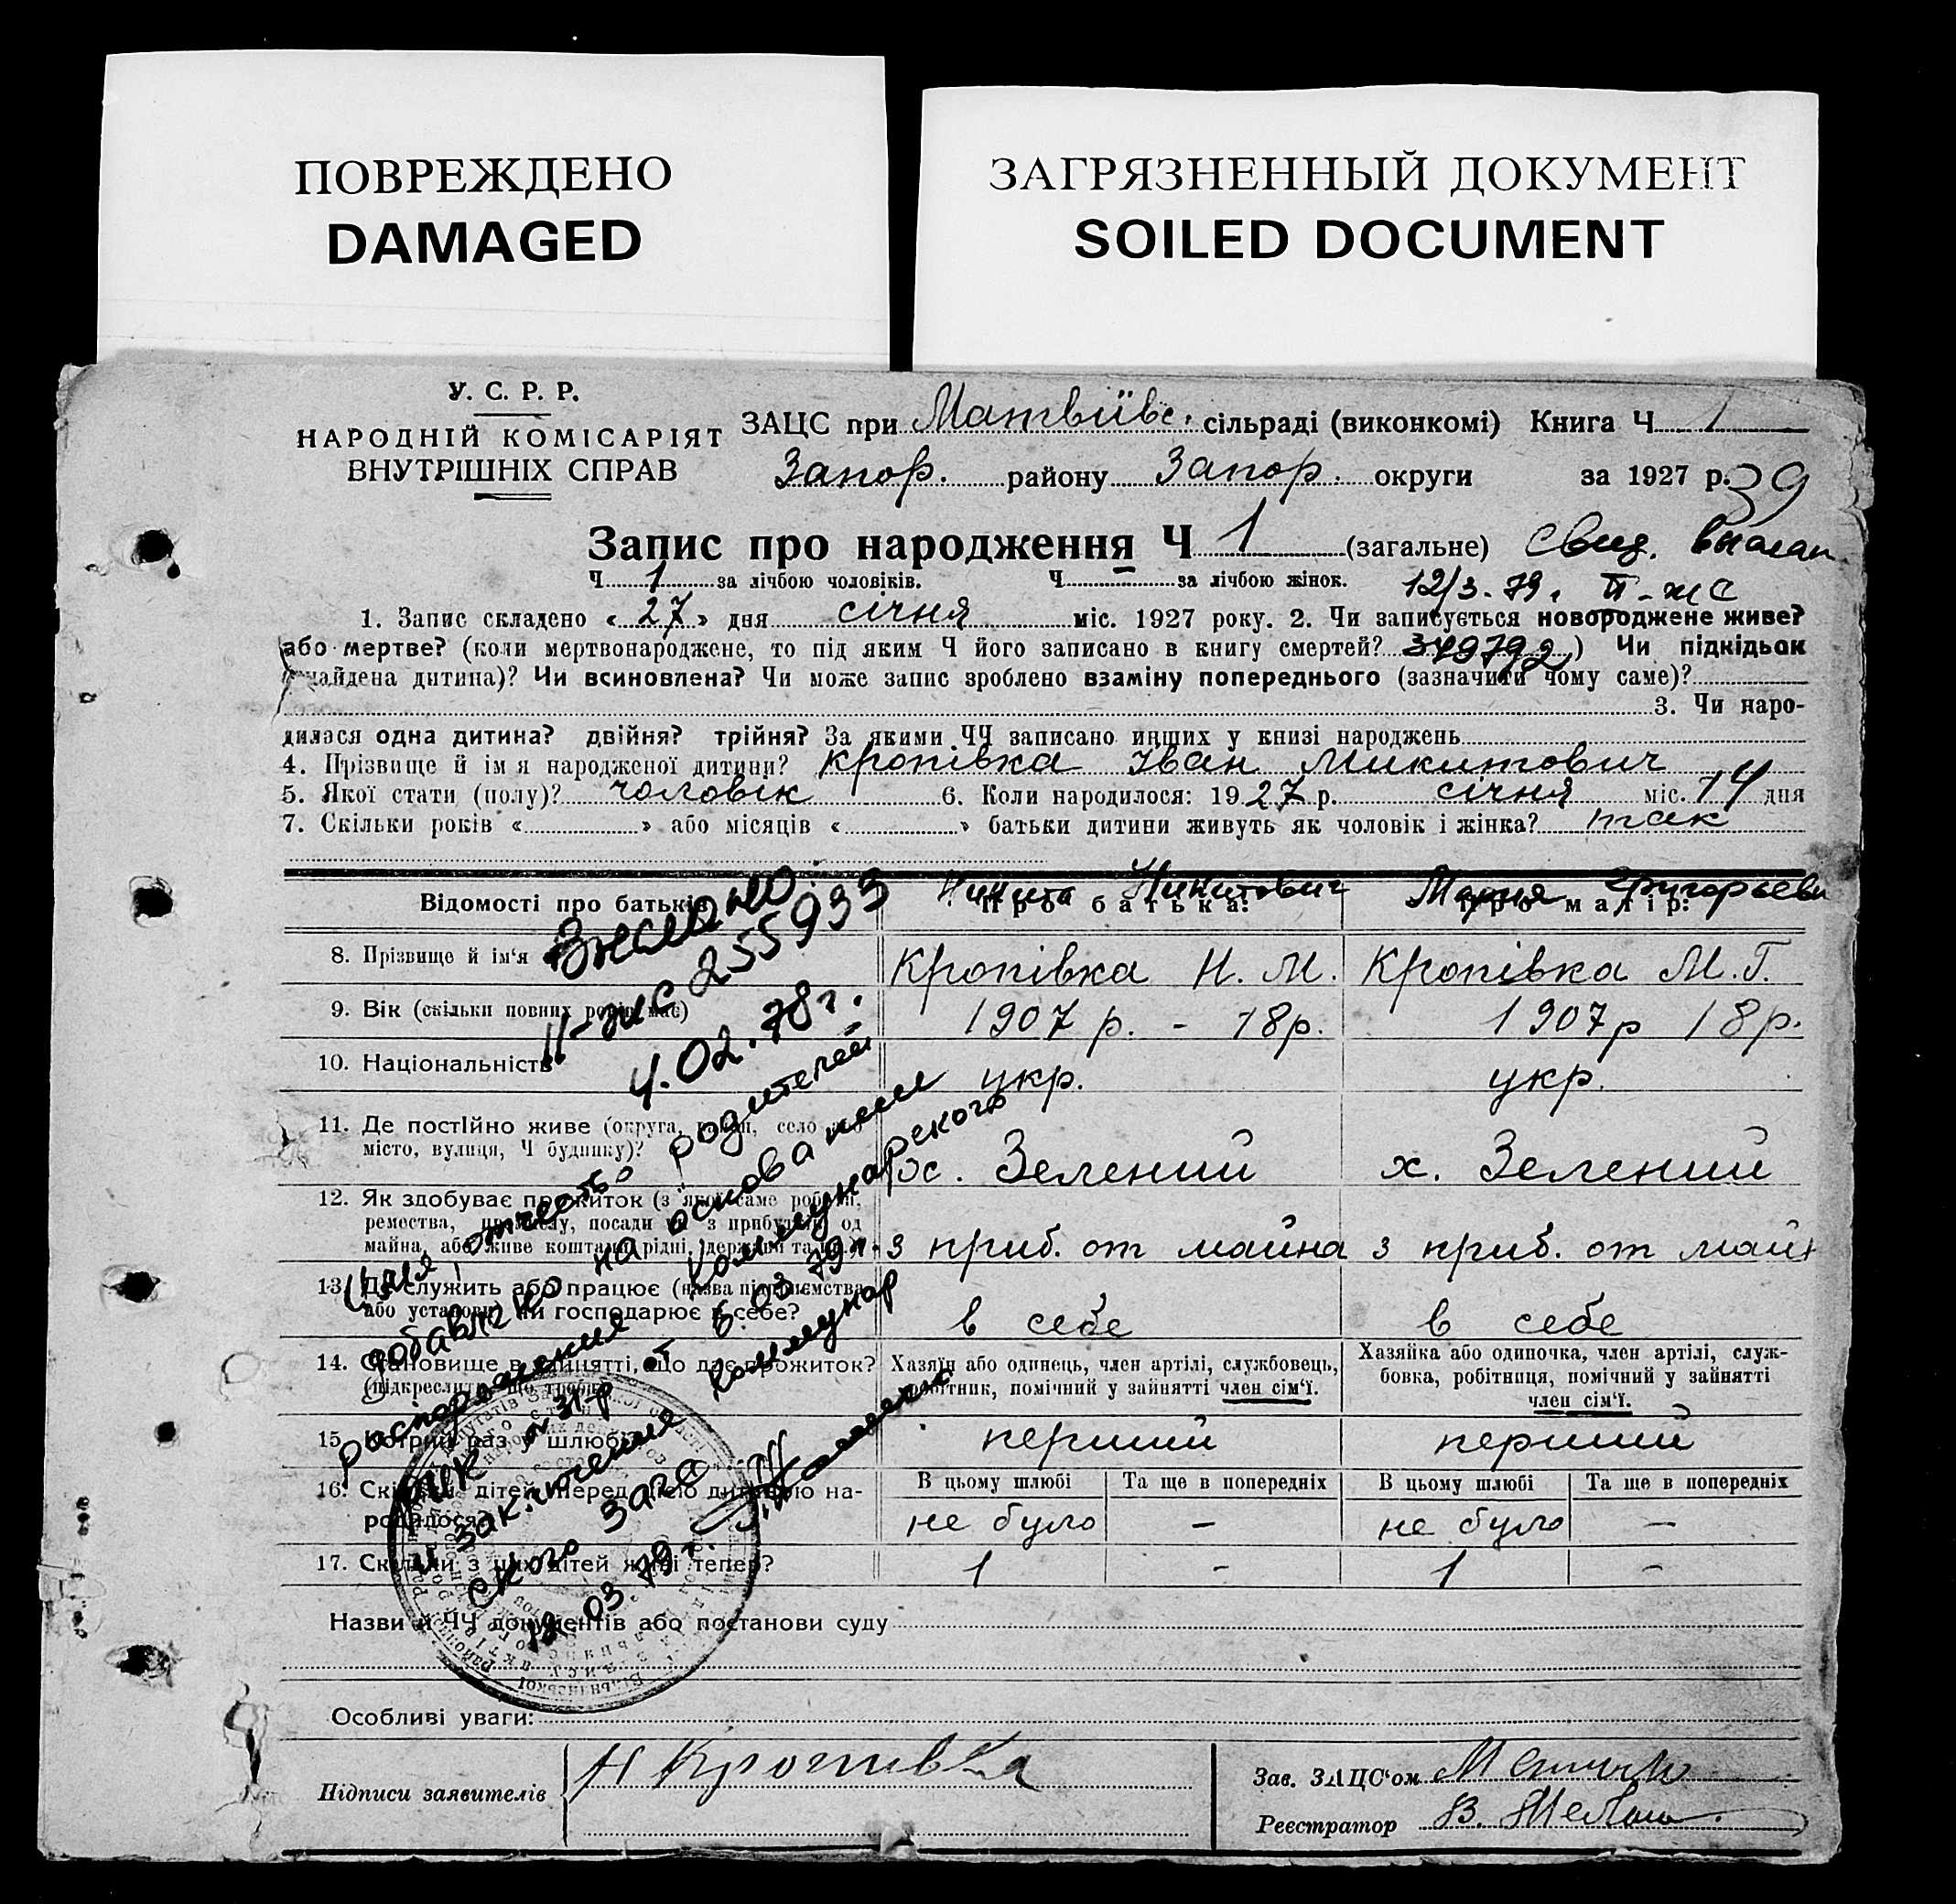 ПОВРЕЖДЕНО
DAMAGED
ЗАГРЯЗНЕННЫЙ ДОКУМЕНТ
SOILED DOCUMENT
У. С. Р. Р.
НАРОДНІЙ КОМІСАРІЯТ
ВНУТРІШНІХ СПРАВ
ЗАЦС при Матвіївс. сільраді (виконкомі) Книга Ч 1
Запор. району Запор. округи за 1927 р. 39
Запис про народження Ч 1 (загальне) Свид.
Ч 1 за лічбою чоловіків. Ч за лічбою жінок. 12/3-79г. II-ЖС
1. Запис складено « 27 » дня січня міс. 1927 року. 2. Чи записується новороджене живе?
або мертве? (коли мертвонароджене, то під яким Ч його записано в книгу смертей? 349792) Чи підкідьок
(знайдена дитина)? Чи всиновлена? Чи може запис зроблено взаміну попереднього (зазначити чому саме)?
3. Чи наро-
дилася одна дитина? двійня? трійня? За якими ЧЧ записано инших у книзі народжень
4. Прізвище й ім я народженої дитини? Кропівка Іван Микитович
5. Якої стати (полу)? чоловік 6. Коли народилося: 1927 р. січня міс. 14 дня
7. Скільки років « » або місяців « » батьки дитини живуть як чоловік і жінка? так
Никита Никитович Мария Григорьевн
Відомості про батьків Про батька: Про матір:
8. Прізвище й ім'я Кропівка Н. М. Кропівка М. Г.
9. Вік (скільки повних років має) 1907 р. - 18р. 1907 р 18р.
10. Національність укр. укр.
11. Де постійно живе (округа, район, село або
місто, вулиця, Ч будинку)? х. Зелений х. Зелений
12. Як здобуває прожиток (з якої саме роботи,
ремества, промислу, посади чи з прибутків од
майна, або живе коштами рідні, держави та ин.) з приб. от майна з приб. от май
13. Де служить або працює (назва підприємства
або установи) чи господарює в себе? в себе в себе
14. Становище в занятті, що дає прожиток?
(підкреслити що треба)
Хазяїн або одинець, член артілі, службовець,
робітник, помічний у зайнятті член сім'ї.
Хазяйка або одиночка, член артілі, служ-
бовка, робітниця, помічний у зайнятті
член сім'ї.
15. Котрий раз у шлюбі? перший перший
16. Скільки дітей перед цією дитиною на-
родилося?
В цьому шлюбі Та ще в попередніх В цьому шлюбі Та ще в попередніх
не було — не було —
17. Скільки з них дітей живі тепер? 1 - 1 -
Назви й ЧЧ документів або постанови суду
Особливі уваги:
Підписи заявителів Н Кропивка
Зав. ЗАЦС'ом
Реєстратор В.
II-ЖС 255933
4.02.78г.
Имя, отчество родителей
добавлено на основании
распоряжения Коммунарского
РИК №31р от 6.03.79г.
и заключения Коммунар
ского Загс
12.03.79г.